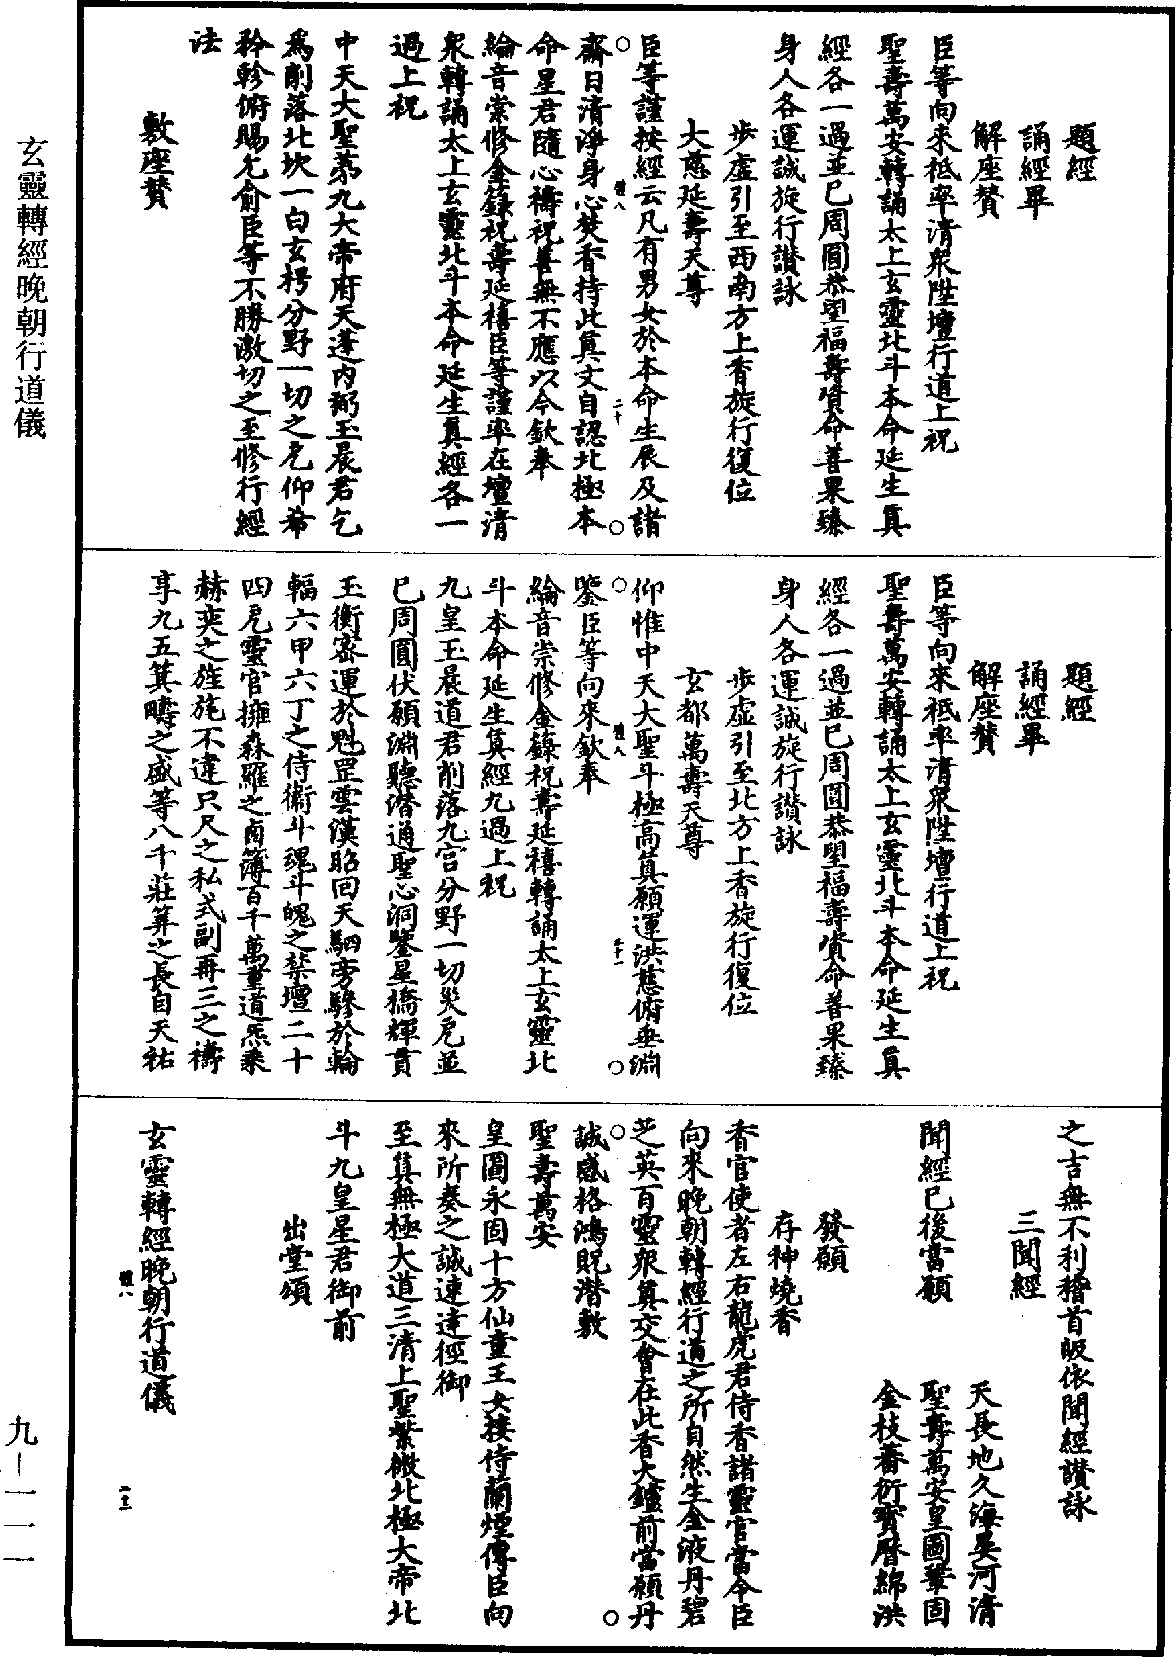 題經
誦經畢
解座贊
臣等向來祗率清衆陞壇行道上祝
聖壽萬安轉誦太上玄靈北斗本命延生真
經各一過並已周圓恭望福壽資命善果臻
身人各運誠旋行讃詠
步虛引至西南方上香旋行復位
大慈延壽天尊
臣等謹按經云凡有男女於本命生辰及諸
齋日清淨身心焚香持此真文自認北極本
命星君隨心禱祝善無不應以今欽奉
綸音崇修金籙祝壽延禧臣等謹率在壇清
衆轉誦太上玄靈北斗本命延生真經各一
過上祝
中天大聖第九大帝府天蓬內弼玉晨君乞
爲削落北坎一白玄枵分野一切之厄仰希
矜軫俯賜允俞臣等不勝激切之至修行經
法
敷座贊
題經
誦經畢
解座贊
臣等向來祗率清衆陞壇行道上祝
聖壽萬安轉誦太上玄靈北斗本命延生真
經各一過並已周圓恭望福壽資命善果臻
身人各運誠旋行讃詠
步虛引至北方上香旋行復位
玄都萬壽天尊
仰惟中天大聖斗極高真願運洪慈俯垂淵
鑒臣等向來欽奉
綸音崇修金籙祝壽延禧轉誦太上玄靈北
斗本命延生真經九過上祝
九皇玉晨道君削落九宮分野一切災厄並
已周圓伏願淵聽潛通聖心洞鑒星橋輝貫
玉衡密運於魁罡雲漢昭回天駟旁驂於輪
輻六甲六丁之侍衞斗魂斗魄之禁壇二十
四炁靈官擁森羅之鹵簿百千萬重道炁乘
赫奕之旌旄不違只尺之私式副再三之禱
享九五箕疇之盛等八千莊筭之長自天祐
之吉無不利稽首皈依聞經讃詠
三聞經
天長地久海晏河清
聞經已後當願 聖壽萬安皇圖鞏固
金枝蕃衍寳曆綿洪
發願
存神燒香
香官使者左右龍虎君侍香諸靈官當令臣
向來晚朝轉經行道之所自然生金液丹碧
芝英百靈衆真交會在此香火鑪前當願丹
誠感格鴻貺潛敷
聖壽萬安
皇圖永固十方仙童玉女接侍蘭煙傳臣向
來所奏之誠速達徑御
至真無極大道三清上聖紫微北極大帝北
斗九皇星君御前
出堂頌
玄靈轉經晚朝行道儀
玄靈轉經晚朝行道儀
九—一一一